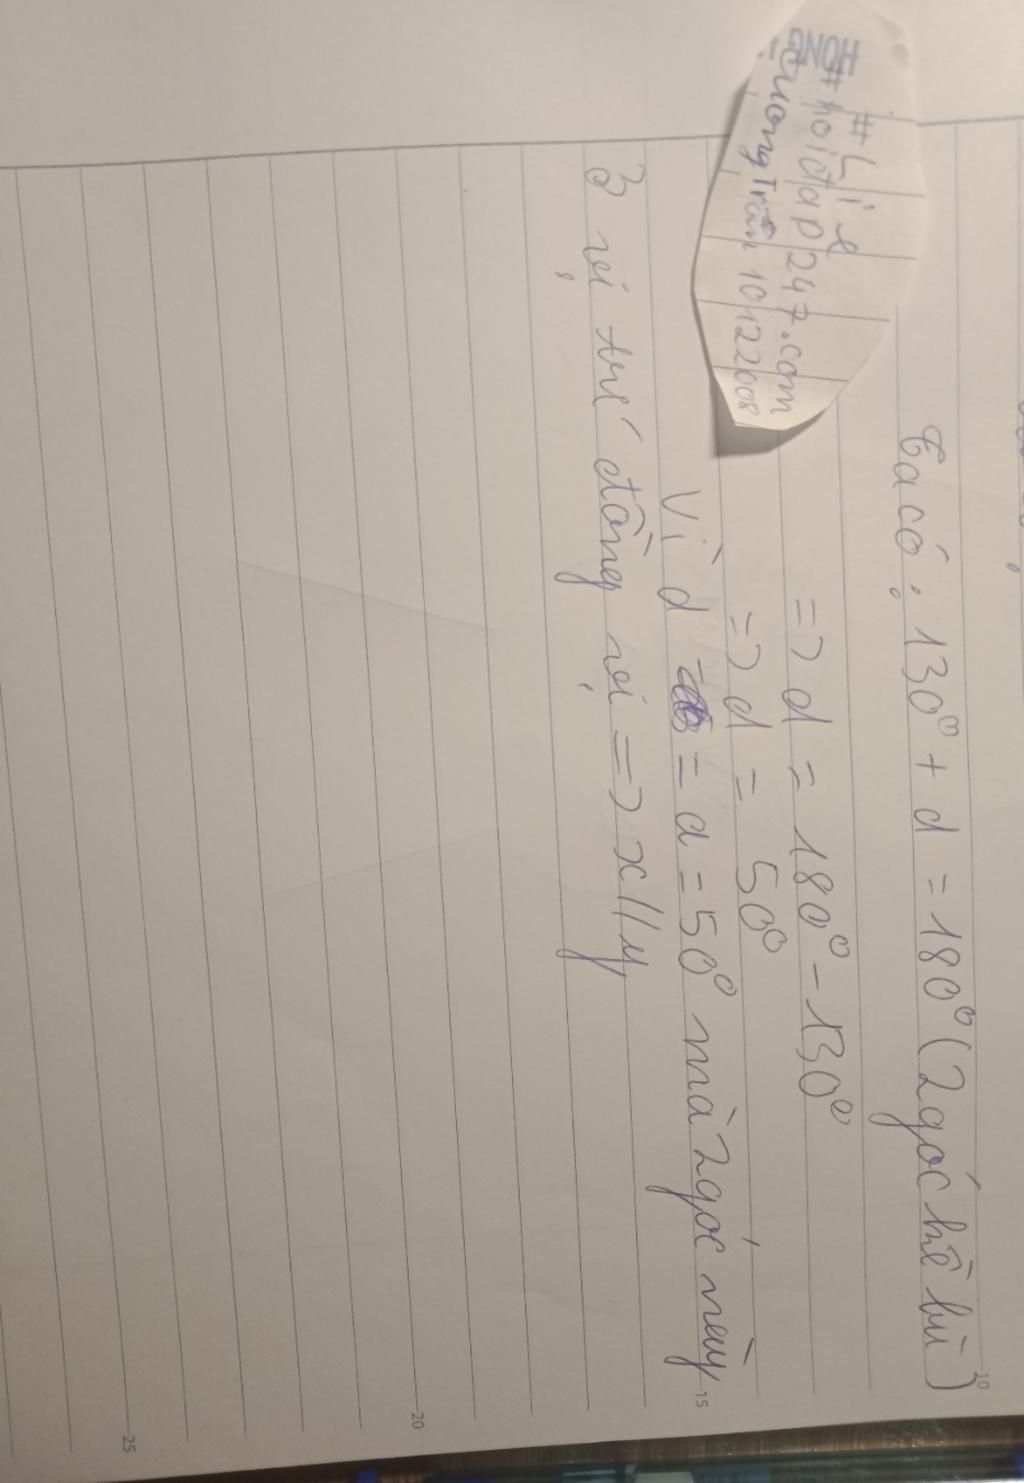 HONG
# Lie
# hoidap247.com
CuongTrần 10122008
Ta có: 130° + d = 180° (2 góc kề bù)
=> d = 180° - 130°
=> d = 50°
Vì d = a = 50° mà 2 góc này
ở vị trí đồng vị => x // y
10
15
20
25